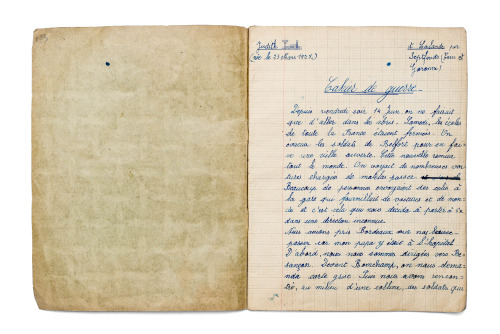 Judith
(née le 23 Mars 192
d'Lalande par
Septfonds (Tarn et
Garonne)
Cahier de guerre.
Depuis vendredi soir 14 Juin on ne faisait
que d'aller dans les abris. Samedi, les écoles
de toute la France étaient fermées. On
évacua les soldats de Belfort pour en fai-
re une ville ouverte. Cette nouvelle remua
tout le monde. On voyait de nombreuses voi-
tures chargées de matelas passer
Beaucoup de personnes envoyaient des colis à
la gare qui fourmillait de voitures et de mon-
de et c'est cela que nous décida à partir à 5h
dans une direction inconnue.
Nous aurions pris Bordeaux
passer car mon papa y était à l'hôpital
D'abord, nous nous sommes dirigées vers Be-
sançon. Devant Bonchamp, on nous deman-
da carte grise. Puis nous avons rencon-
tré, au milieu d'une colline, des soldats qui